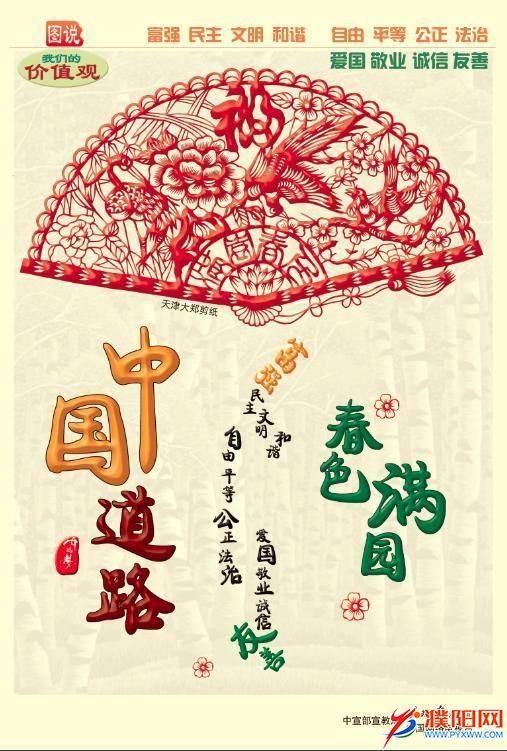 图说
我们的
价值观
富强 民主 文明 和谐 自由 平等 公正 法治
爱国 敬业 诚信 友善
福
满园春色
天津大郑剪纸
中国
道路
富强
民主
文明
和谐
自由平等
公正法治
爱国敬业诚信
友善
春色
满园
中国梦
中宣部宣教
濮阳网
www.PYXWW.com